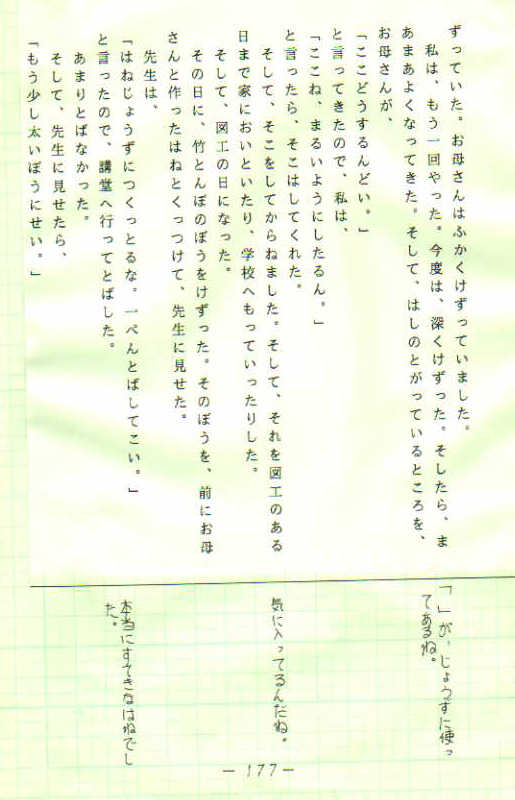 ずっていた。お母さんはふかくけずっていました。
　私は、もう一回やった。今度は、深くけずった。そしたら、ま
あまあよくなってきた。そして、はしのとがっているところを、
お母さんが、
「ここどうするんどい。」
と言ってきたので、私は、
「ここね、まるいようにしたるん。」
と言ったら、そこはしてくれた。
　そして、そこをしてからねました。そして、それを図工のある
日まで家においといたり、学校へもっていったりした。
　そして、図工の日になった。
　その日に、竹とんぼのぼうをけずった。そのぼうを、前にお母
さんと作ったはねとくっつけて、先生に見せた。
　先生は、
「はねじょうずにつくっとるな。一ぺんとばしてこい。」
と言ったので、講堂へ行ってとばした。
　あまりとばなかった。
　そして、先生に見せたら、
「もう少し太いぼうにせい。」
「　」が、じょうずに使っ
てあるね。
気に入ってるんだね。
本当にすてきなはねでし
た。
－177－